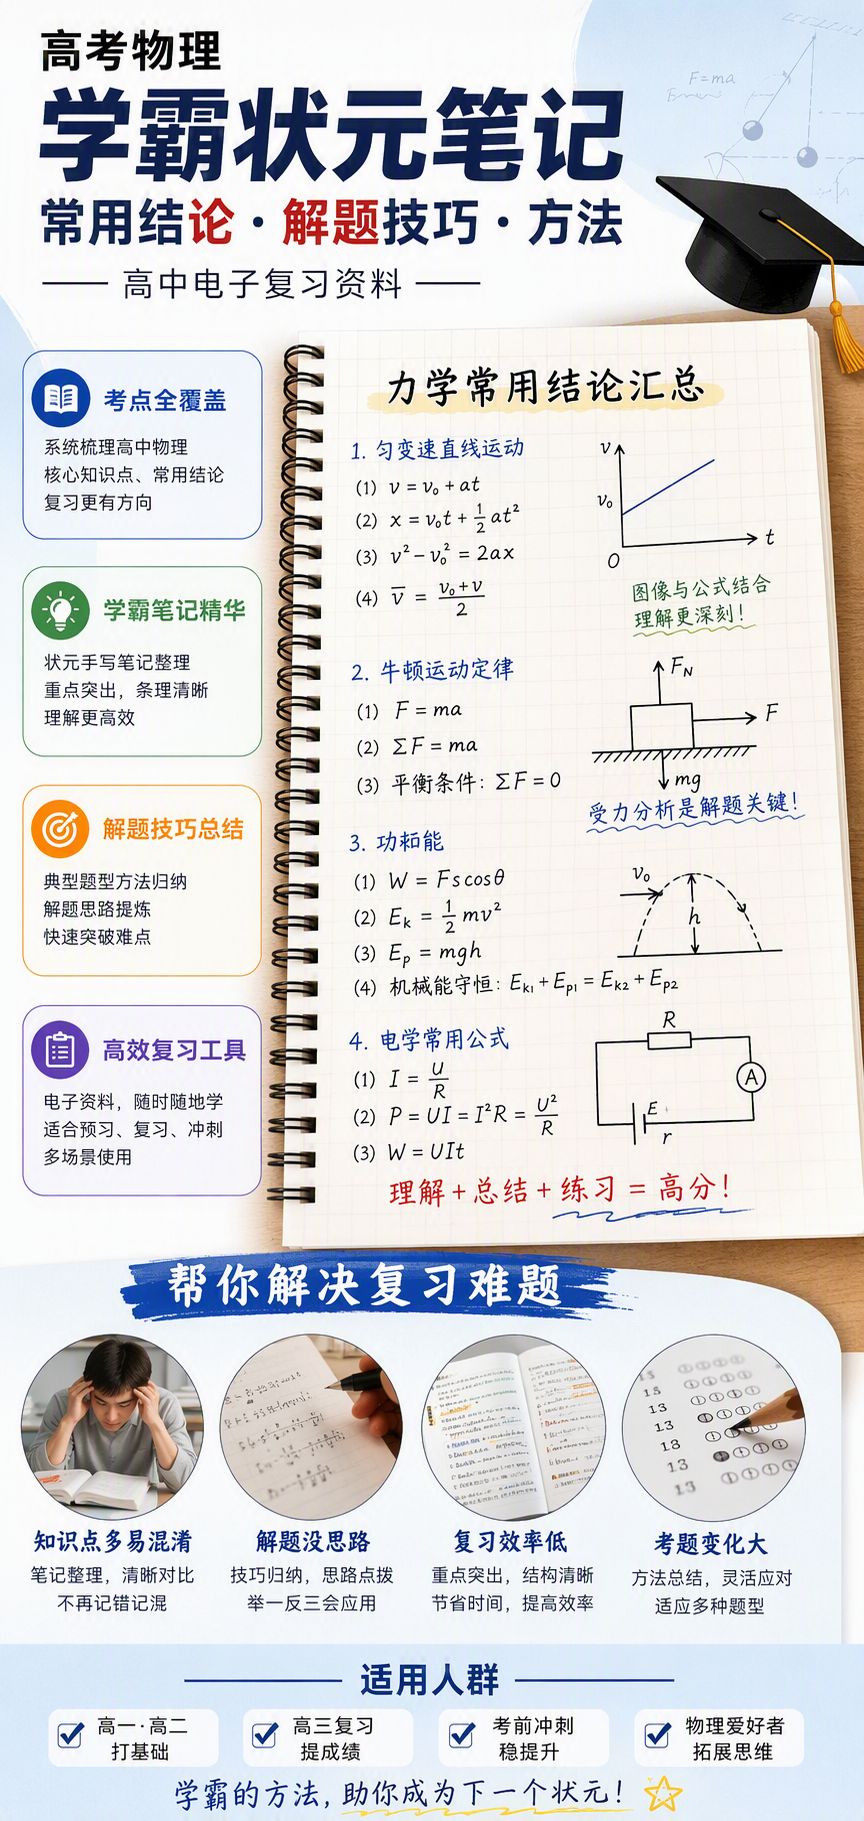 高考物理
学霸状元笔记
常用结论·解题技巧·方法
高中电子复习资料
F=ma
考点全覆盖
系统梳理高中物理
核心知识点、常用结论
复习更有方向
学霸笔记精华
状元手写笔记整理
重点突出，条理清晰
理解更高效
解题技巧总结
典型题型方法归纳
解题思路提炼
快速突破难点
高效复习工具
电子资料，随时随地学
适合预习、复习、冲刺
多场景使用
力学常用结论汇总
1. 匀变速直线运动
(1) v = v₀ + at
(2) x = v₀t + 1/2 at²
(3) v² − v₀² = 2ax
(4) v̅ = (v₀+v)/2
v
v₀
O
t
图像与公式结合
理解更深刻！
2. 牛顿运动定律
(1) F = ma
(2) ΣF = ma
(3) 平衡条件：ΣF = 0
F_N
F
mg
受力分析是解题关键！
3. 功和能
(1) W = Fs cosθ
(2) E_k = 1/2 mv²
(3) E_p = mgh
(4) 机械能守恒：E_k1 + E_p1 = E_k2 + E_p2
v₀
h
4. 电学常用公式
(1) I = U/R
(2) P = UI = I²R = U²/R
(3) W = UIt
R
A
E
r
理解 + 总结 + 练习 = 高分！
帮你解决复习难题
13
15
13
13
13
13
知识点多易混淆
笔记整理，清晰对比
不再记错记混
解题没思路
技巧归纳，思路点拨
举一反三会应用
复习效率低
重点突出，结构清晰
节省时间，提高效率
考题变化大
方法总结，灵活应对
适应多种题型
适用人群
高一·高二
打基础
高三复习
提成绩
考前冲刺
稳提升
物理爱好者
拓展思维
学霸的方法，助你成为下一个状元！